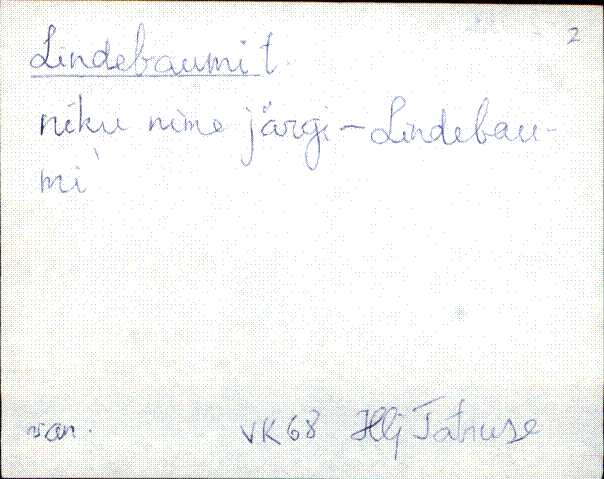 2
Lindebaumi t.
niku nime järgi - Lindebau-
mi`
van.
VK 68 Hlj Tatruse